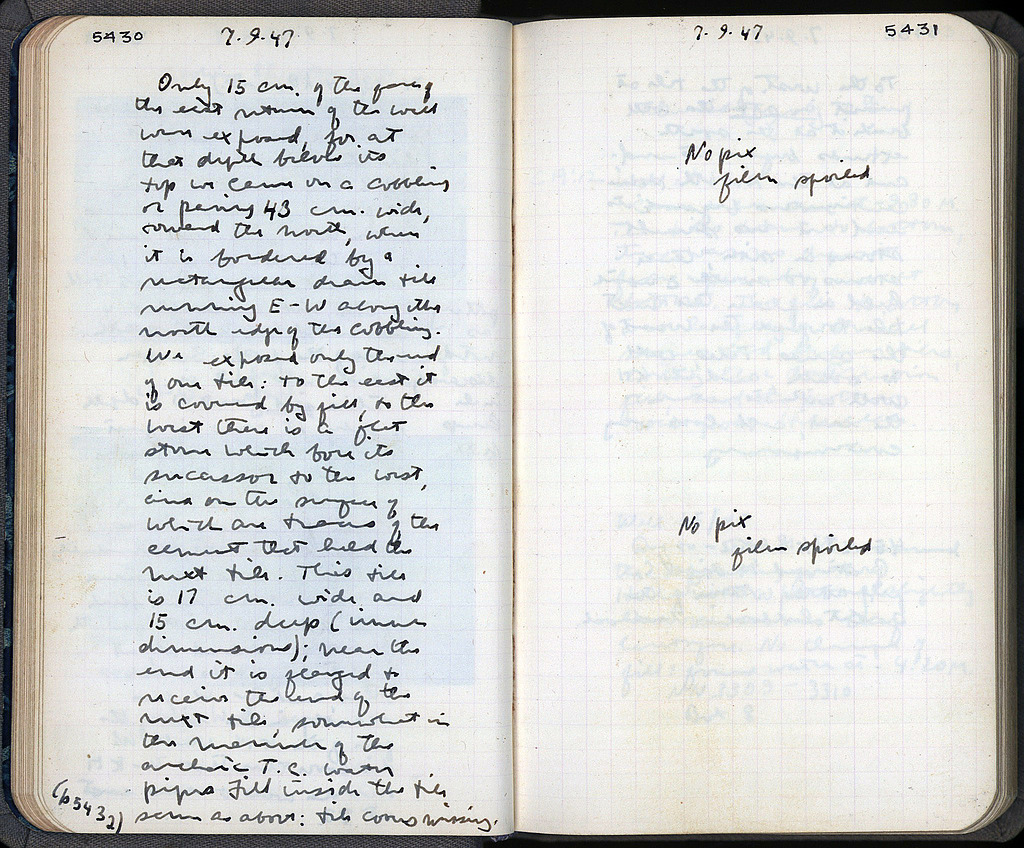 5430
7.9.47
Only 15 cm. of the face of
the east return of the wall
were exposed, for at
that depth below its
top we came on a cobbling
or paving 43 cm. wide,
toward the north, where
it is bordered by a
rectangular drain tile
running E-W along the
north edge of the cobbling.
We exposed only the end
of one tile: to the east it
is covered by fill, to the
west there is a flat
stone which bore its
successor to the west,
and on the surface of
which are traces of the
cement that held the
next tile. This tile
is 17 cm. wide and
15 cm. deep (inner
dimensions); near the
end it is flanged to
receive the end of the
next tile, somewhat in
the manner of the
archaic T.C. water
pipes. Fill inside the tile
same as above: tile cover missing.
(p5432)
7.9.47
5431
No pix
film spoiled
No pix
film spoiled